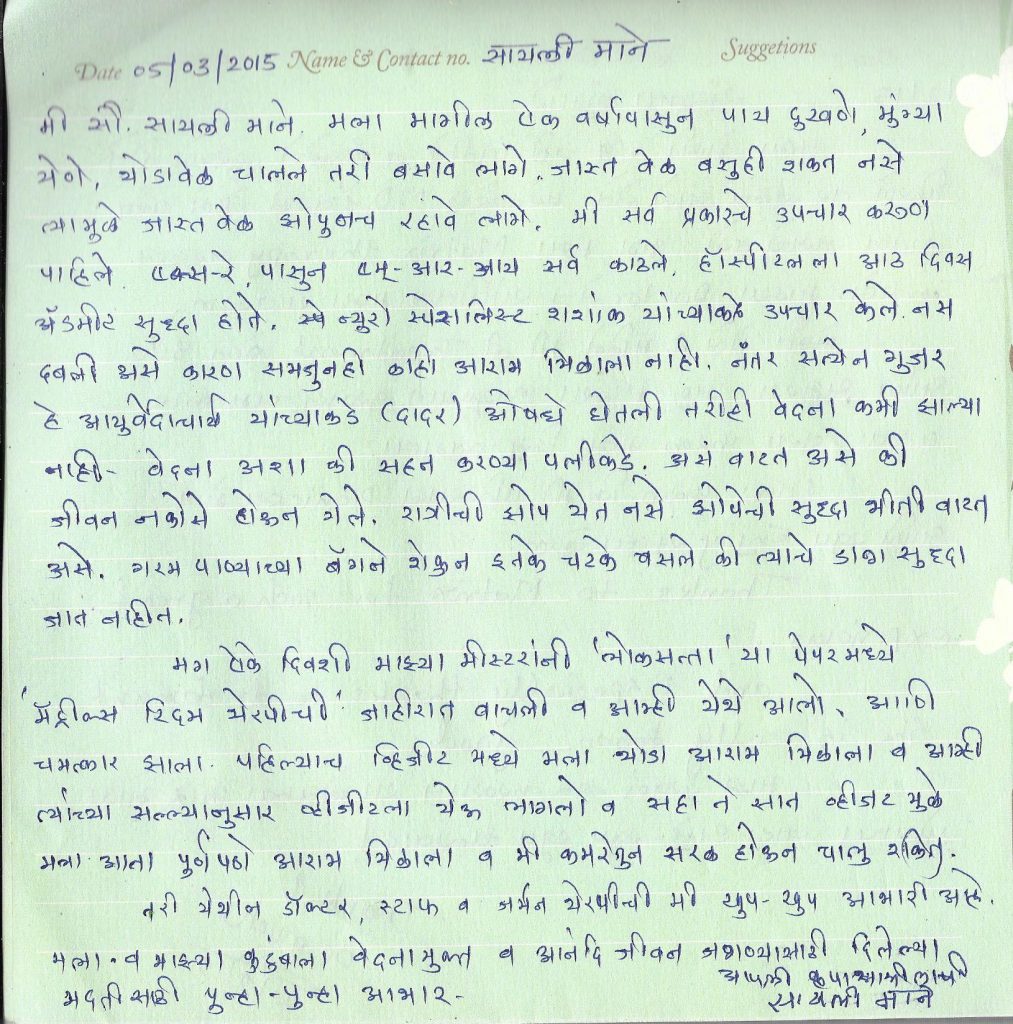 Date 05/03/2015 Name & Contact no. सायली माने Suggetions
मी सौ. सायली माने. मला मागील ऐक वर्षापासुन पाय दुखणे, मुंग्या
येणे, थोडावेळ चालले तरी बसावे लागे. जास्त वेळ बसुही शकत नसे
त्यामुळे जास्त वेळ झोपुनच रहावे लागे. मी सर्व प्रकारचे उपचार करुण
पाहिले. एक्स-रे, पासुन एम्-आर-आय सर्व काढले. हॉस्पीटलला आठ दिवस
अ‍ॅडमीट सुद्दा होते. न्युरो स्पेशालिस्ट शशांक यांच्याकडे उपचार केले. नस
दबली असे कारण समजुनही काही आराम मिळाला नाही. नंतर सत्येन गुजर
हे आयुर्वेदाचार्य यांच्याकडे (दादर) औषधे घेतली तरीही वेदना कमी झाल्या
नाही- वेदना अशा की सहन करण्या पलीकडे. असं वाटत असे की
जीवन नकोसे होऊन गेले. रात्रीची झोप येत नसे. झोपेची सुद्दा भीती वाटत
असे. गरम पाण्याच्या बॅगने शेकुन इतके चटके बसले की त्याचे डाग सुद्दा
जात नाहीत.
मग ऐके दिवशी माझ्या मीस्टरांनी 'लोकसत्ता' या पेपरमध्ये
'मॅट्रीक्स रिदम थेरपीची' जाहीरात वाचली व आम्ही येथे आलो. आणि
चमत्कार झाला. पहिल्याच व्हिजीट मध्ये मला थोडा आराम मिळाला व आम्ही
त्यांच्या सल्ल्यानुसार व्हीजीटला येऊ लागलो व सहा ते सात व्हीजट मुळे
मला आता पुर्णपणे आराम मिळाला व मी कमरेतुन सरळ होऊन चालु शकते.
तरी येथील डॉक्टर, स्टाफ व जर्मन थेरपीची मी खुप-खुप आभारी आहे.
मला व माझ्या कुटुंबाला वेदनामुक्त व आनंदि जीवन जगण्यासाठी दिलेल्या
मदतीसाठी पुन्हा-पुन्हा आभार-
आपली कृपाअभिलाषी
सायली माने